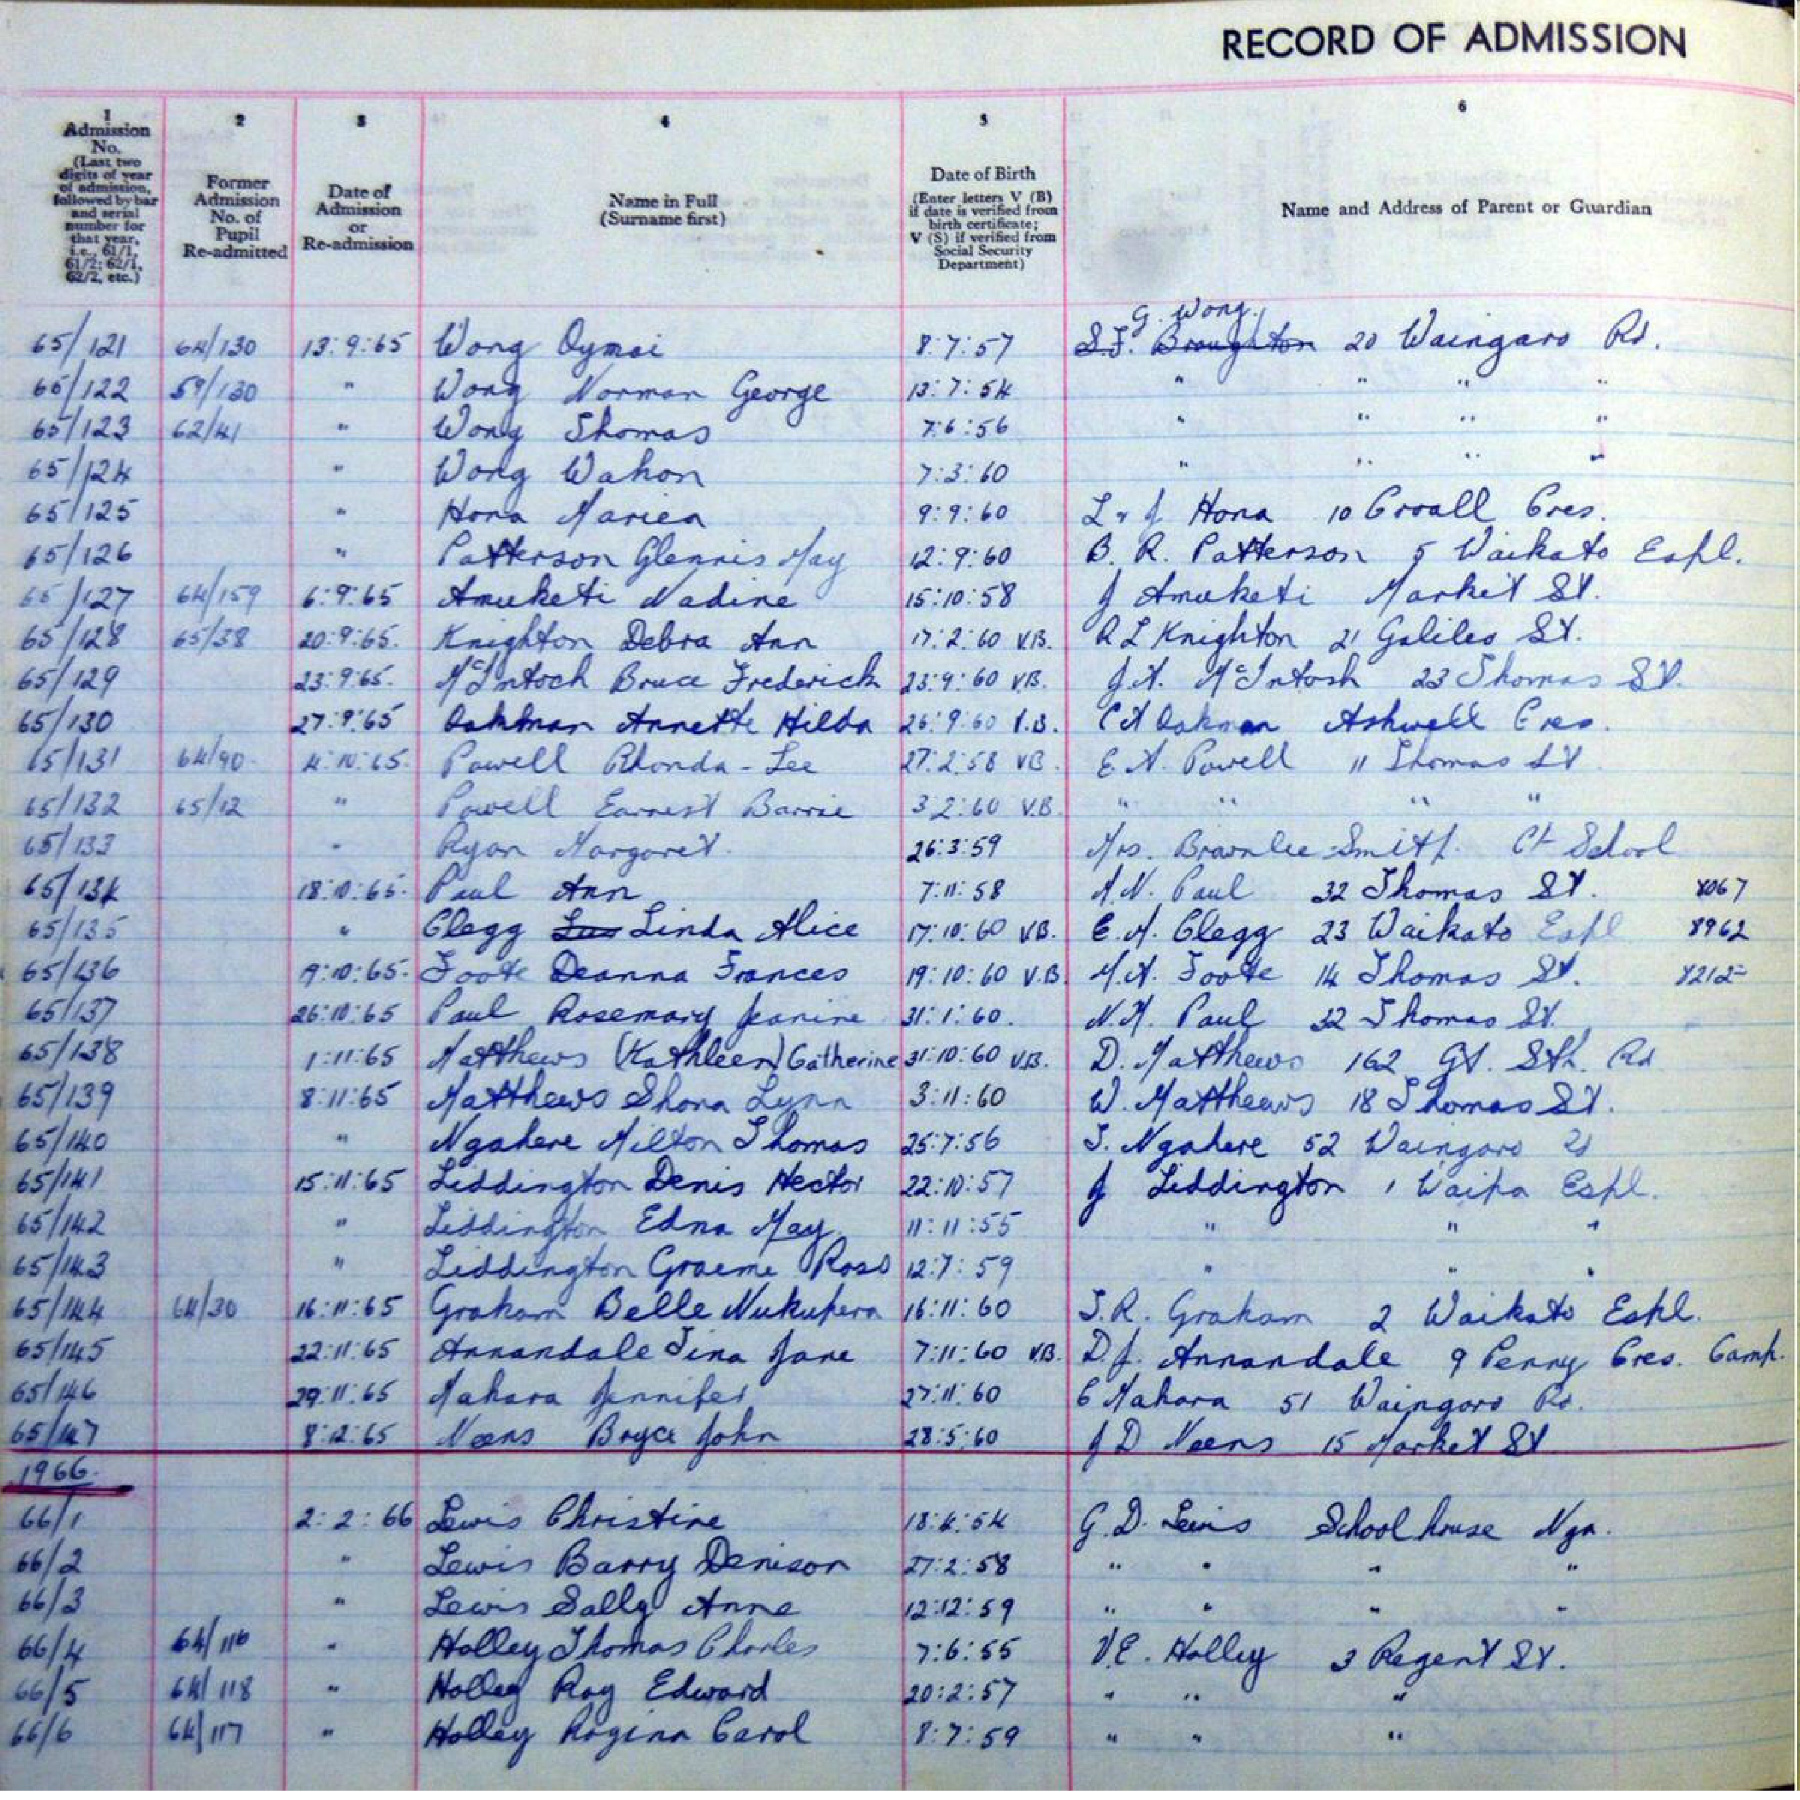 RECORD OF ADMISSION
1 2 3 4 5 6
Admission No. (Last two digits of year of admission, followed by bar and serial number for that year, i.e., 61/1, 61/2; 62/1, 62/2, etc.)
Former Admission No. of Pupil Re-admitted
Date of Admission or Re-admission
Name in Full (Surname first)
Date of Birth (Enter letters V (B) if date is verified from birth certificate; V (S) if verified from Social Security Department)
Name and Address of Parent or Guardian
G. Wong
65/121 64/130 13:9:65 Wong Oymoi 8:7:57 S.F. Broughton 20 Waingaro Rd.
65/122 59/130 " Wong Norman George 13:7:54 " " " "
65/123 62/41 " Wong Thomas 7:6:56 " " " "
65/124 " Wong Wahon 7:3:60 " " " "
65/125 " Hona Mariea 9:9:60 L & J Hona 10 Croall Cres.
65/126 " Patterson Glennis May 12:9:60 B. R. Patterson 5 Waikato Espl.
65/127 64/159 6:9:65 Amuketi Nadine 15:10:58 J Amuketi Market St.
65/128 65/38 20:9:65. Knighton Debra Ann 17:2:60 V.B. R L Knighton 21 Galileo St.
65/129 23:9:65. McIntoch Bruce Frederick 23:9:60 V.B. J.A. McIntosh 23 Thomas St.
65/130 27:9:65 Oakman Annette Hilda 26:9:60 V.B. C A Oakman Ashwell Cres.
65/131 64/90. 4:10:65. Powell Rhonda-Lee 27:2:58 VB. E. A. Powell 11 Thomas St
65/132 65/12 " Powell Earnest Barrie 3 2:60 V.B. " " " "
65/133 " Ryan Margaret. 26:3:59 Mrs. Brownlee-Smith. Ct School
65/134 18:10:65. Paul Ann 7:11:58 A. N. Paul 32 Thomas St. 8067
65/135 " Clegg Linda Alice 17:10:60 V.B. E. A. Clegg 23 Waikato Espl 8962
65/136 9:10:65. Foote Deanna Frances 19:10:60 V.B. M. A. Foote 14 Thomas St. 8212
65/137 26:10:65 Paul Rosemary Jeanine 31:1:60. N. A. Paul 32 Thomas St.
65/138 1:11:65 Matthews (Kathleen) Catherine 31:10:60 V.B. D. Matthews 162 Gt. Sth. Rd
65/139 8:11:65 Matthews Shona Lynn 3:11:60 W. Matthews 18 Thomas St.
65/140 " Ngahere Milton Thomas 25:7:56 T. Ngahere 52 Waingaro
65/141 15:11:65 Liddington Denis Hector 22:10:57 J Liddington 1 Waipa Espl.
65/142 " Liddington Edna May 11:11:55 " " "
65/143 " Liddington Graeme Ross 12:7:59 " " "
65/144 64/30 16:11:65 Graham Belle Nukupera 16:11:60 T. R. Graham 2 Waikato Espl.
65/145 22:11:65 Annandale Tina Jane 7:11:60 V.B. D. J. Annandale 9 Penny Cres. Camp.
65/146 29:11:65 Mahara Jennifer 27:11:60 C Mahara 51 Waingaro Rd.
65/147 8:12:65 Neens Bryce John 28:5:60 J D Neens 15 Market St
1966.
66/1 2:2:66 Lewis Christine 18:4:54 G. D. Lewis School house Nga.
66/2 " Lewis Barry Denison 27:2:58 " " " "
66/3 " Lewis Sally Anne 12:12:59 " " " "
66/4 64/116 " Holley Thomas Charles 7:6:55 V.E. Holley 3 Regent St.
66/5 64/118 " Holley Roy Edward 20:2:57 " " "
66/6 64/117 " Holley Regina Carol 8:7:59 " " "